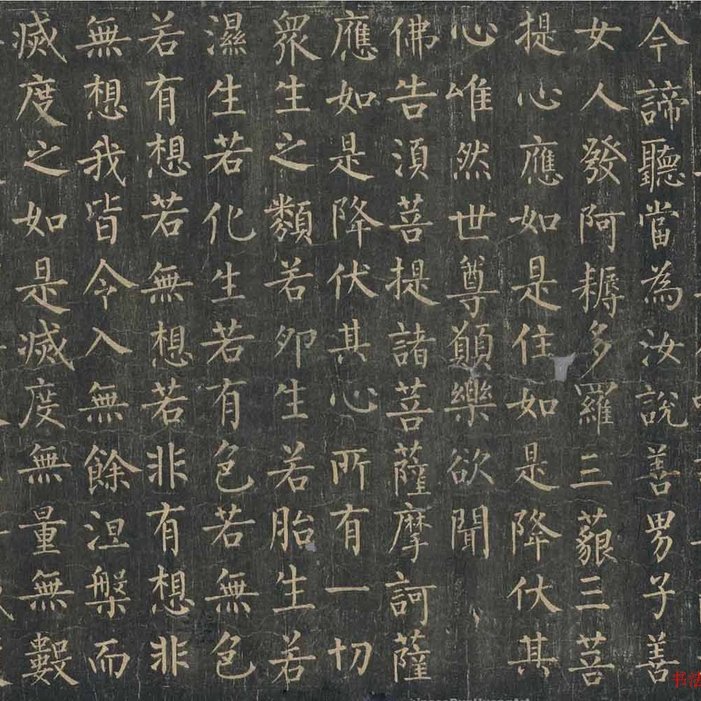 今諦聽當為汝說善男子善
女人發阿耨多羅三藐三菩
提心應如是住如是降伏其
心唯然世尊願樂欲聞
佛告須菩提諸菩薩摩訶薩
應如是降伏其心所有一切
衆生之類若卵生若胎生若
濕生若化生若有色若無色
若有想若無想若非有想非
無想我皆令入無餘涅槃而
滅度之如是滅度無量無數
书法